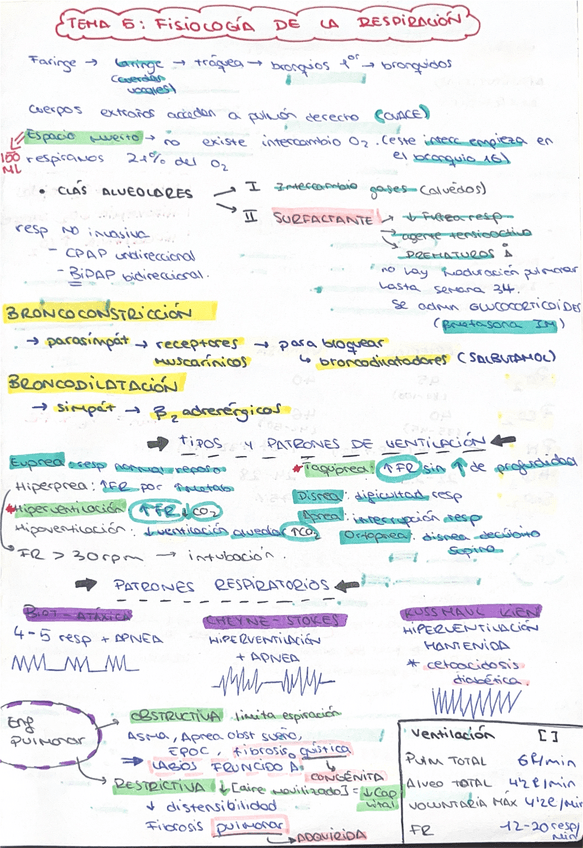 TEMA 5: FISIOLOGÍA DE LA RESPIRACIÓN
Faringe → laringe → tráquea → bronquios 1er → bronquios
(cuerdas vocales)
Cuerpos extraños acceden a pulmón derecho (CLASE)
Espacio muerto → no existe intercambio O2. (este interc empieza en
150 ML respiramos 21% del O2 el bronquio 16)
• CLAS ALVEOLARES → I Intercambio gases (alvéolos)
→ II SURFACTANTE → ↓ Fuerza resp
→ agente tensioactivo
→ PREMATUROS
resp NO invasiva
- CPAP unidireccional
- BiPAP bidireccional.
no hay maduración pulmonar
hasta semana 34.
Se admin GLUCOCORTICOIDES
(Betatasona IM)
BRONCOCONSTRICCIÓN
→ parasimpát → receptores muscarínicos → para bloquear
↳ broncodilatadores (SALBUTAMOL)
BRONCODILATACIÓN
→ simpát → B2 adrerérgicos
➡ TIPOS Y PATRONES DE VENTILACIÓN ⬅
Eupnea: resp normal reposo
Hiperpnea: ↑FR por
*Hiperventilación ↑FR ↓CO2
Hipoventilación: ↓ventilación alveolar ↑CO2
FR > 30rpm → intubación.
*Taquipnea: ↑FR sin ↑ de profundidad
Disnea: dificultad resp
Apnea: interrupción resp
Ortopnea: disnea decúbito supino
➡ PATRONES RESPIRATORIOS ⬅
BIOT-ATÁXICA
4-5 resp + APNEA
CHEYNE-STOKES
HIPERVENTILACIÓN
+ APNEA
KUSSMAUL KIEN
HIPERVENTILACIÓN
MANTENIDA
* cetoacidosis
diabética.
Enf PULMONAR
→ OBSTRUCTIVA limita espiración
ASMA, Apnea obst sueño,
EPOC, fibrosis quística
→ CONGÉNITA
⇒ LABIOS FRUNCIDOS
→ RESTRICTIVA ↓[aire movilizado] = ↓Cap vital
↓ distensibilidad
Fibrosis pulmonar
→ ADQUIRIDA
Ventilación []
PULM TOTAL 6l/min
Alveo TOTAL 4'2 l/min
VOLUNTARIA MÁX
FR 12-20 resp/min